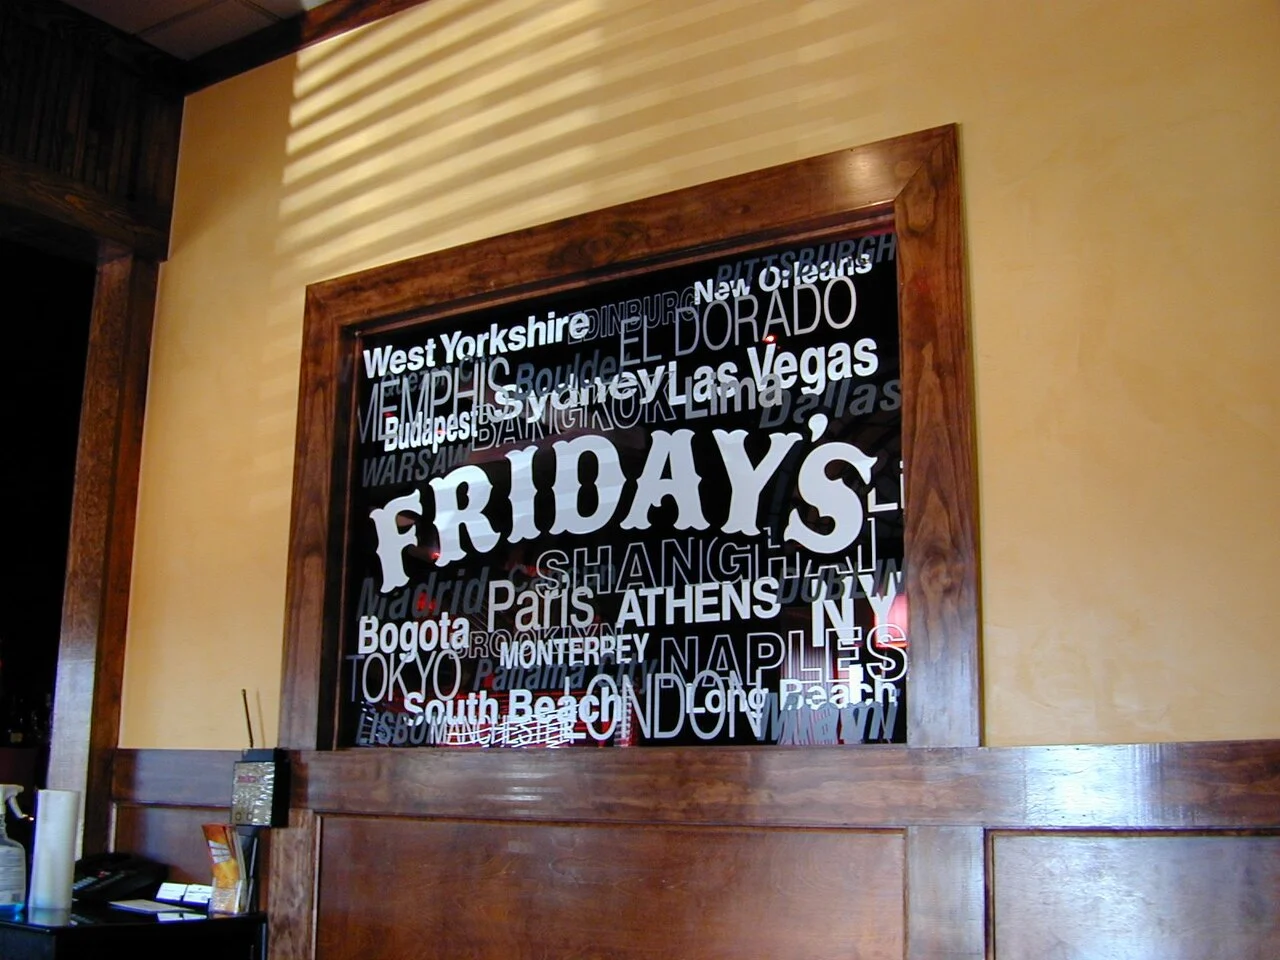 PITTSBURGH
New Orleans
West Yorkshire
EDINBURG
EL DORADO
MEMPHIS
Boulder
Sydney
Las Vegas
Budapest
BANGKOK
Lima
Dallas
WARSAW
FRIDAY'S
Li
SHANGHAI
Madrid
Paris
ATHENS
DUBLIN
NY
Bogota
BROOKLYN
MONTERREY
NAPLES
TOKYO
Panama City
South Beach
LONDON
Long Beach
LISBO
MANCHESTER